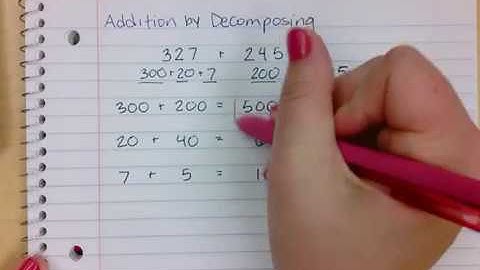 Addition by Decomposing
327 + 245
300+20+7 200 5
300 + 200 = 500
20 + 40 =
7 + 5 = 1